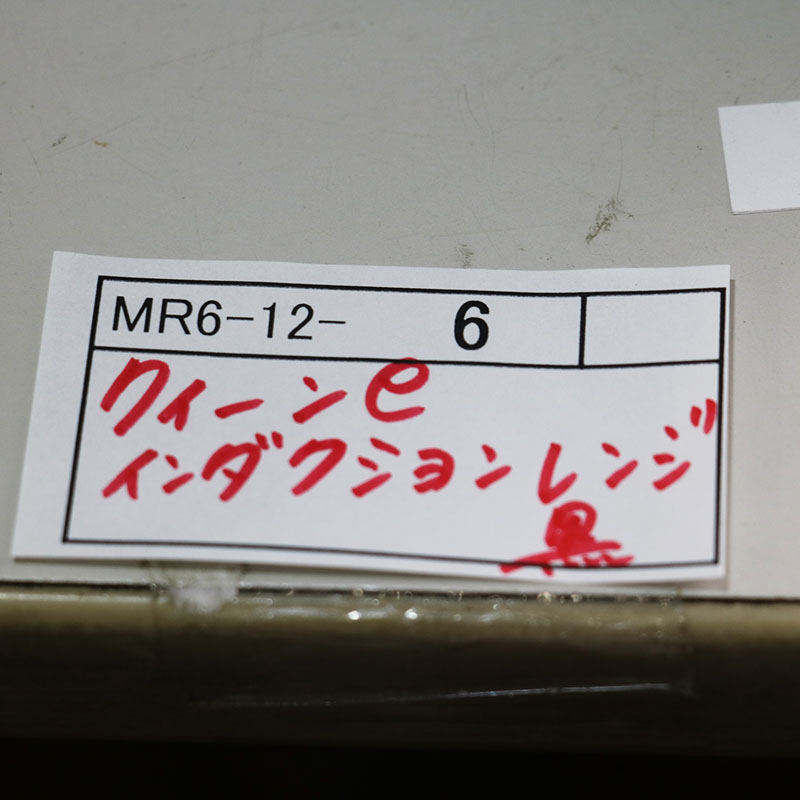 MR6-12- 6
クィーンe
インダクションレンジ
黒